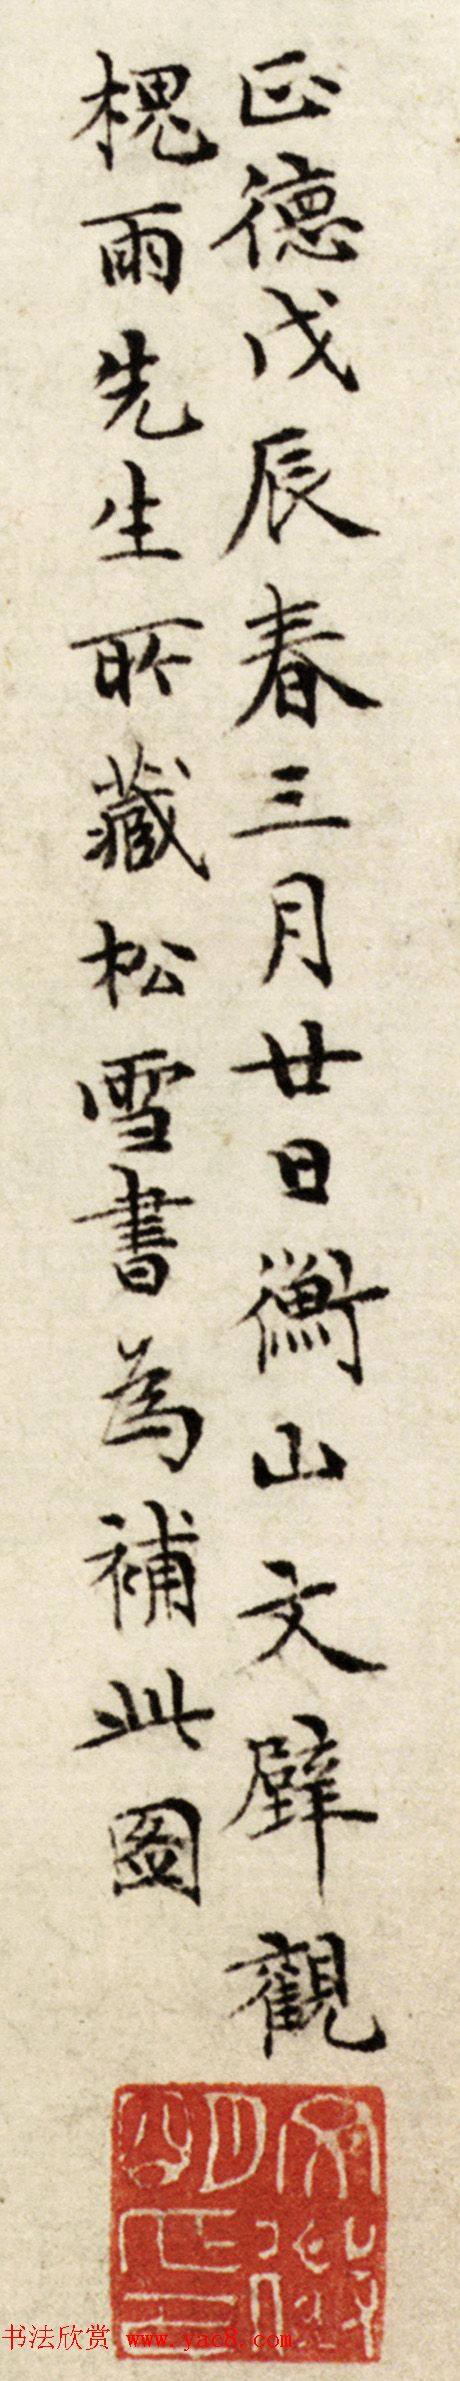 正德戊辰春三月廿日衡山文壁觀
槐雨先生所藏松雪書為補此圖
书法欣赏 www.yac8.com